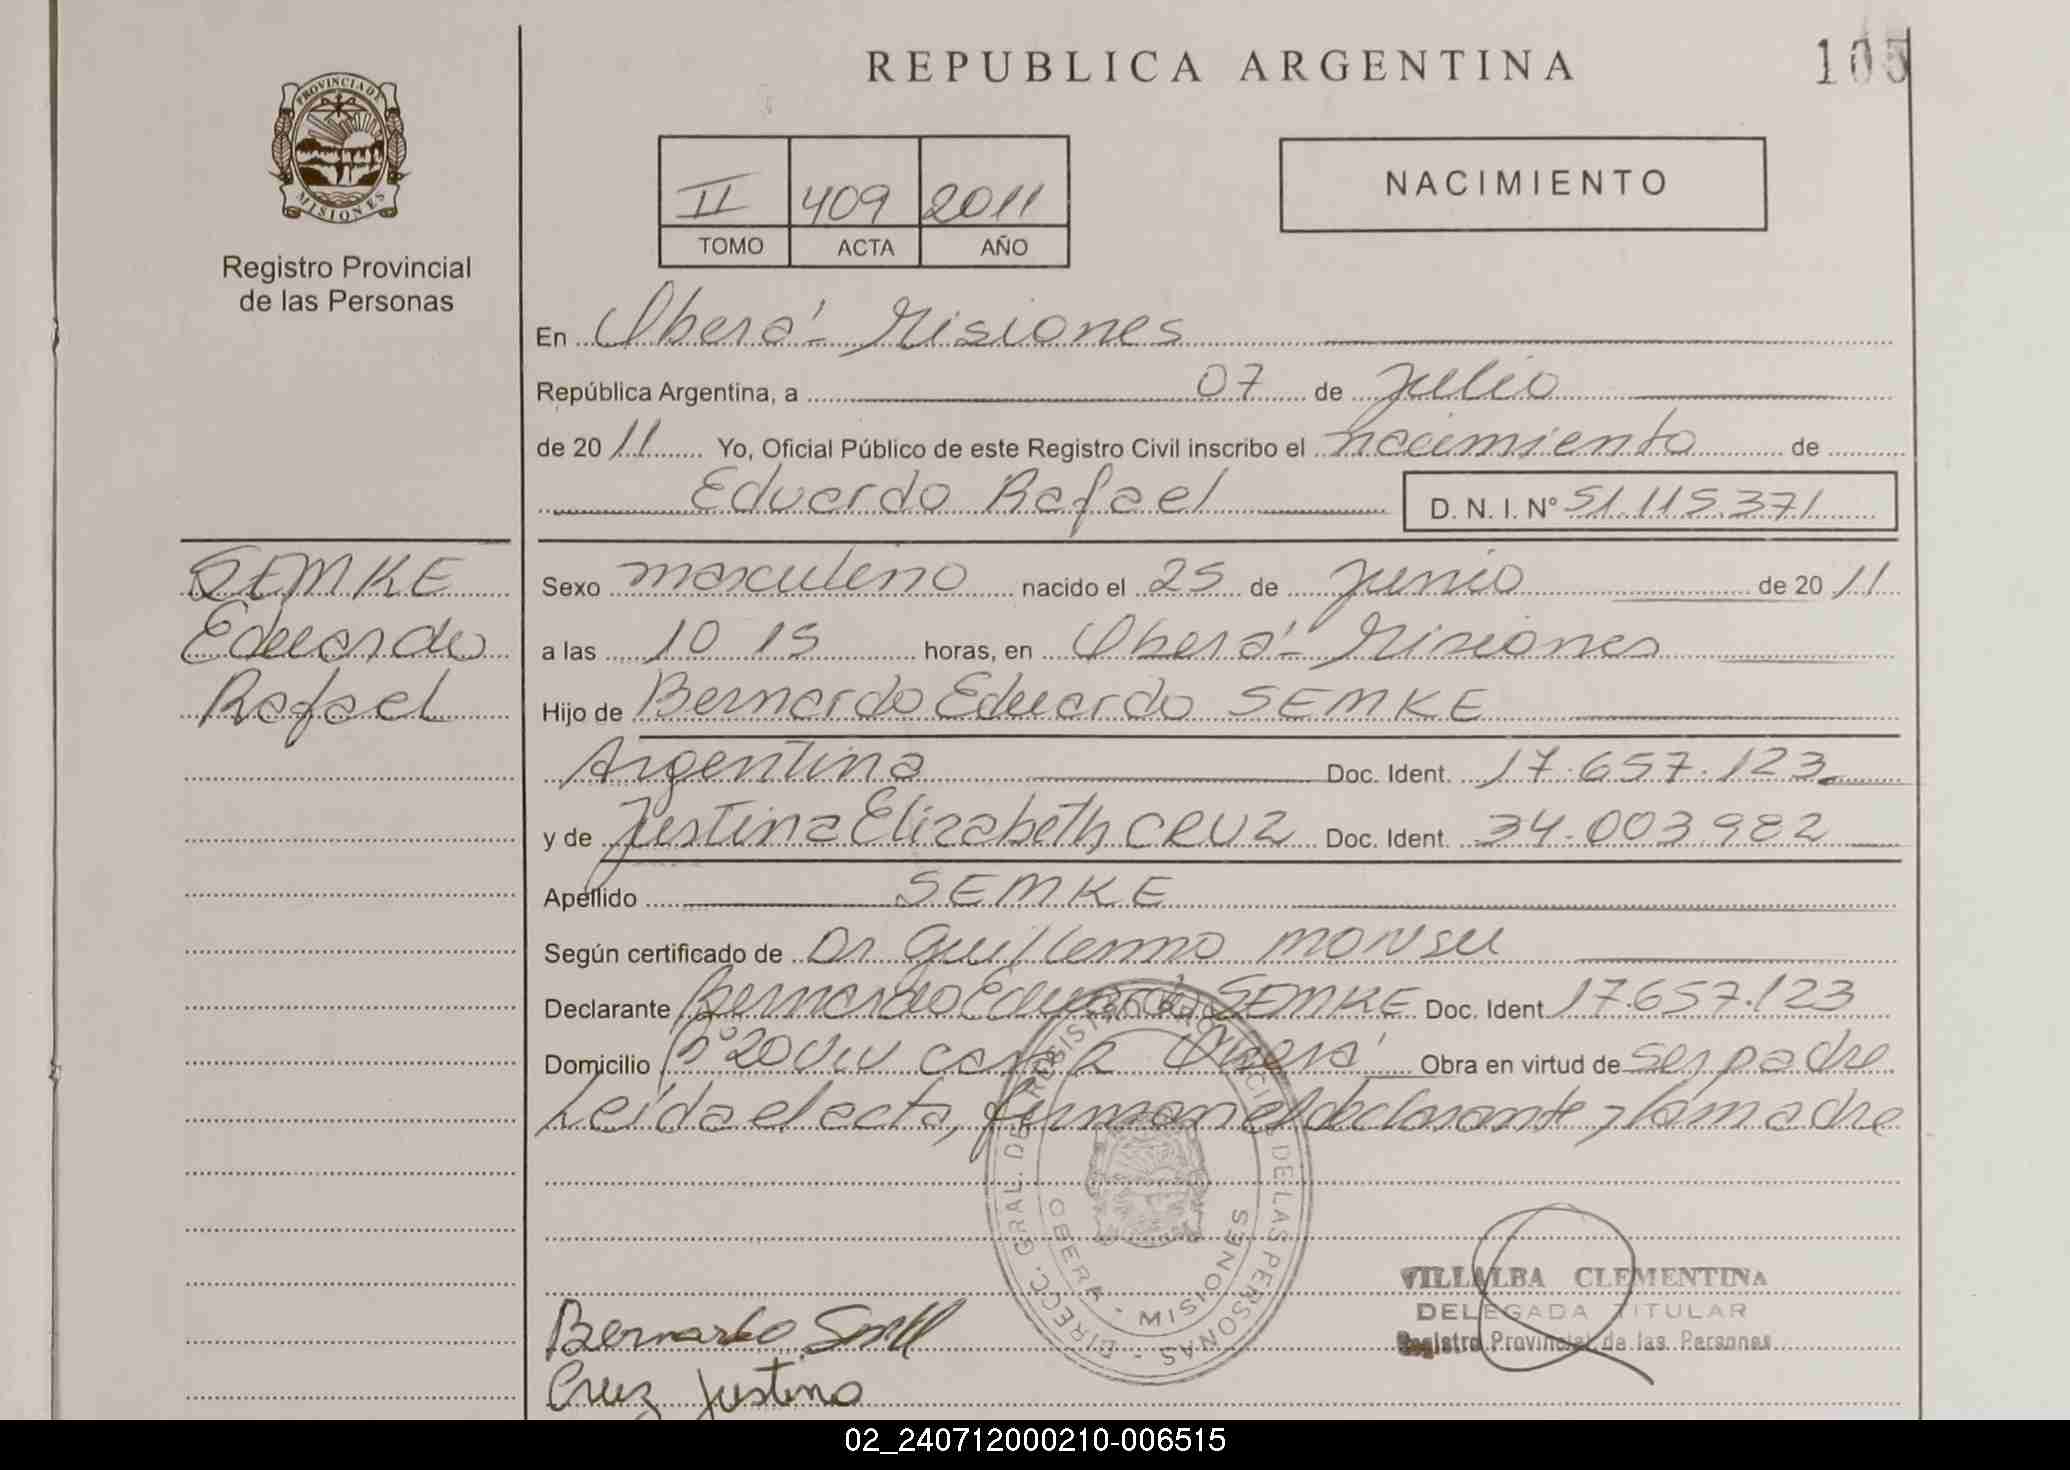 REPUBLICA ARGENTINA
105
PROVINCIA DE
MISIONES
Registro Provincial
de las Personas
II 409 2011
TOMO ACTA AÑO
NACIMIENTO
En Oberá - Misiones
República Argentina, a 07 de Julio
de 2011 Yo, Oficial Público de este Registro Civil inscribo el nacimiento de
Eduardo Rafael D. N. I. Nº 51.115.371
SEMKE
Eduardo
Rafael
Sexo masculino nacido el 25 de Junio de 2011
a las 10 15 horas, en Oberá - Misiones
Hijo de Bernardo Eduardo SEMKE
Argentina Doc. Ident. 17.657.123
y de Justina Elizabeth CRUZ Doc. Ident. 34.003.982
Apellido SEMKE
Según certificado de Dr Guillermo MONSU
Declarante Bernardo Eduardo SEMKE Doc. Ident 17.657.123
Domicilio Bº 20 Viv casa 2 Oberá Obra en virtud de ser padre
Leída el acta, firman el declarante y la madre
DIRECC. GRAL. DE REGISTRO PROVINCIAL DE LAS PERSONAS
OBERA - MISIONES
VILLALBA CLEMENTINA
DELEGADA TITULAR
Registro Provincial de las Personas
Bernardo
Cruz Justina
02_240712000210-006515